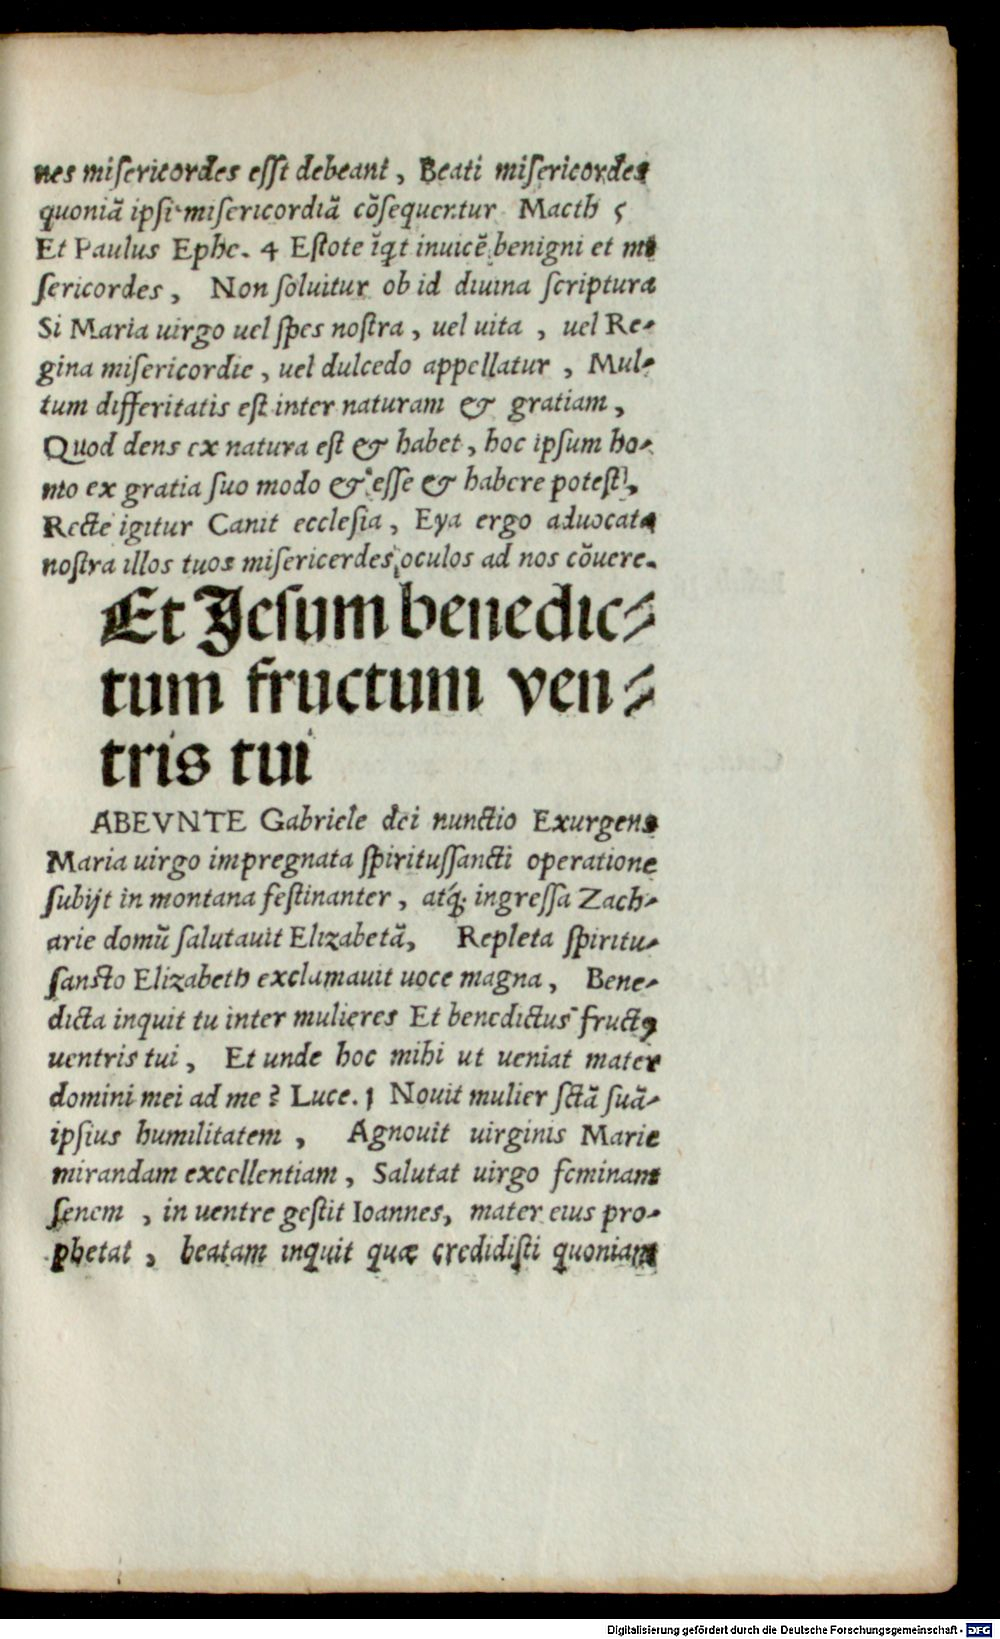 nes misericordes esst debeant, Beati misericordes
quoniã ipsi misericordiã cõsequentur Macth 5
Et Paulus Ephe. 4 Estote ĩqt inuicẽ benigni et mi
sericordes, Non soluitur ob id diuina scriptura
Si Maria uirgo uel spes nostra, uel uita, uel Re-
gina misericordie, uel dulcedo appellatur, Mul-
tum differitatis est inter naturam & gratiam,
Quod dens ex natura est & habet, hoc ipsum ho-
mo ex gratia suo modo & esse & habere potest,
Recte igitur Canit ecclesia, Eya ergo aduocata
nostra illos tuos misericerdes oculos ad nos cõuere.
Et Jesum benedic-
tum fructum ven-
tris tui
ABEVNTE Gabriele dei nunctio Exurgens
Maria uirgo impregnata spiritussancti operatione
subijt in montana festinanter, atq́; ingressa Zach-
arie domũ salutauit Elizabetã, Repleta spiritu-
sancto Elizabeth exclamauit uoce magna, Bene-
dicta inquit tu inter mulieres Et benedictus fructꝰ
uentris tui, Et unde hoc mihi ut ueniat mater
domini mei ad me? Luce. 1 Nouit mulier sctã suã-
ipsius humilitatem, Agnouit uirginis Marie
mirandam excellentiam, Salutat uirgo feminam
senem, in uentre gestit Ioannes, mater eius pro-
phetat, beatam inquit quæ credidisti quoniam
Digitalisierung gefördert durch die Deutsche Forschungsgemeinschaft - DFG